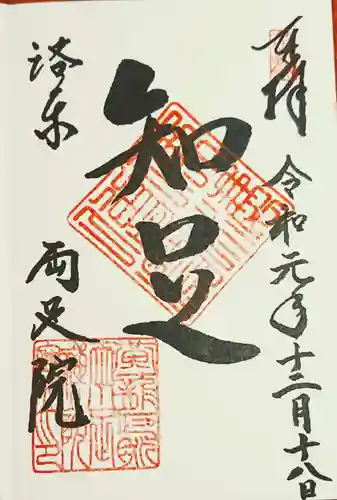 奉拝
令和元年十二月十八日
知足
洛东
両足院